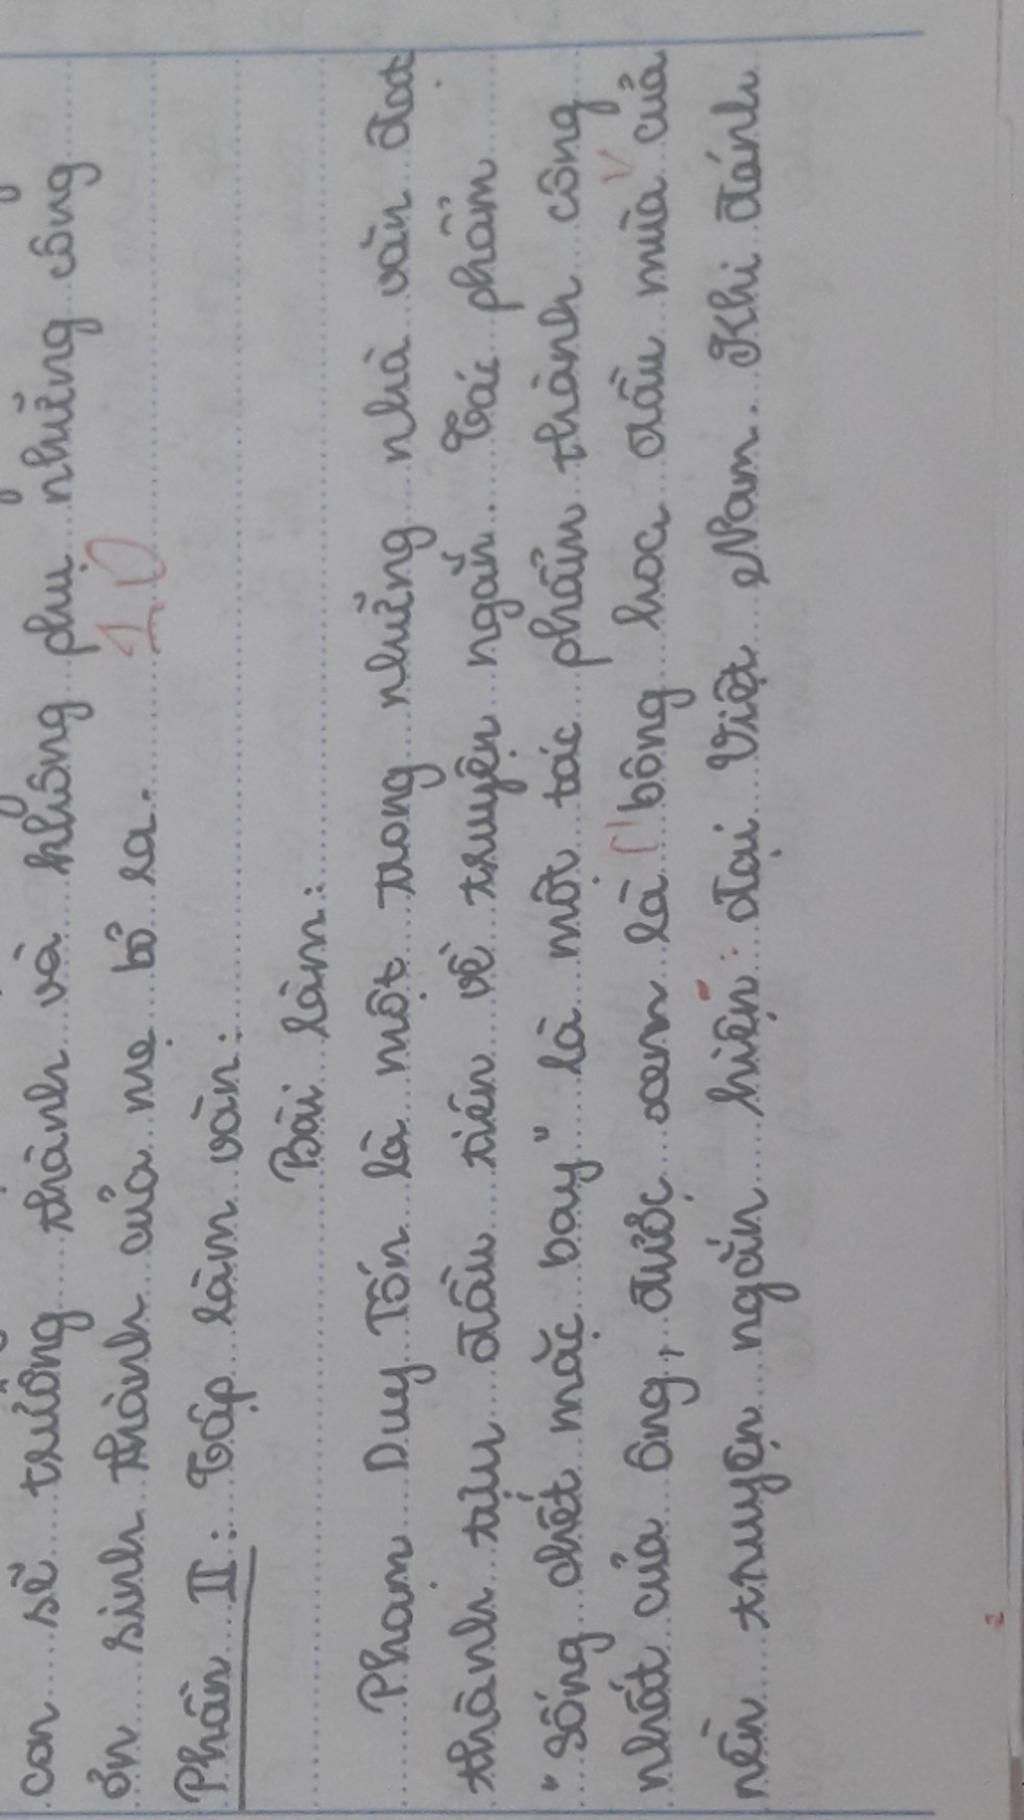 con sẽ trưởng thành và không phụ những công
ơn sinh thành của mẹ bỏ ra.
1,0
Phần II: Tập làm văn:
Bài làm:
Phạm Duy Tốn là một trong những nhà văn đạt
thành tựu đầu tiên về truyện ngắn. Tác phẩm
"Sống chết mặc bay" là một tác phẩm thành công
nhất của ông, được xem là "bông hoa đầu mùa của
nền truyện ngắn hiện đại Việt Nam. Khi đánh
2